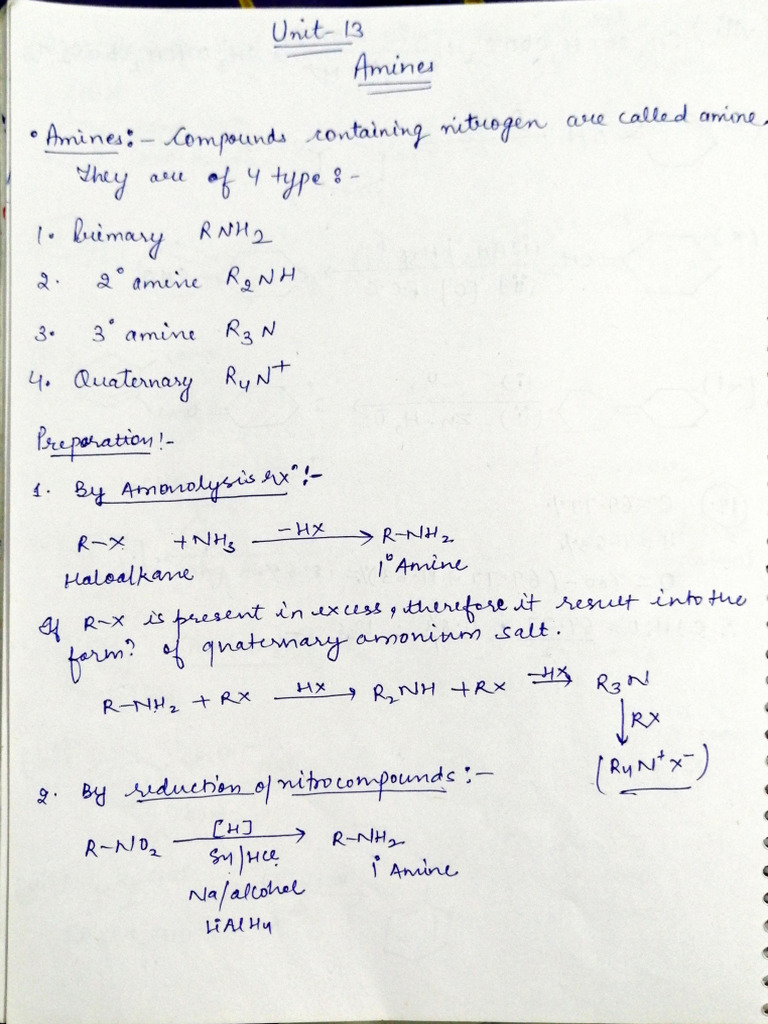 Unit-13
Amines
• Amines:- Compounds containing nitrogen are called amine.
They are of 4 type:-
1. Primary RNH2
2. 2° amine R2NH
3. 3° amine R3N
4. Quaternary R4N+
Preparation:-
1. By Amonolysis rxn:-
R-X + NH3 -HX → R-NH2
Haloalkane 1° Amine
If R-X is present in excess, therefore it result into the
formn of quaternary amonium salt.
R-NH2 + RX HX → R2NH + RX -HX → R3N
↓ RX
(R4N+X-)
2. By reduction of nitrocompounds:-
R-NO2 [H] → R-NH2
Sn/HCl 1° Amine
Na/alcohol
LiAlH4